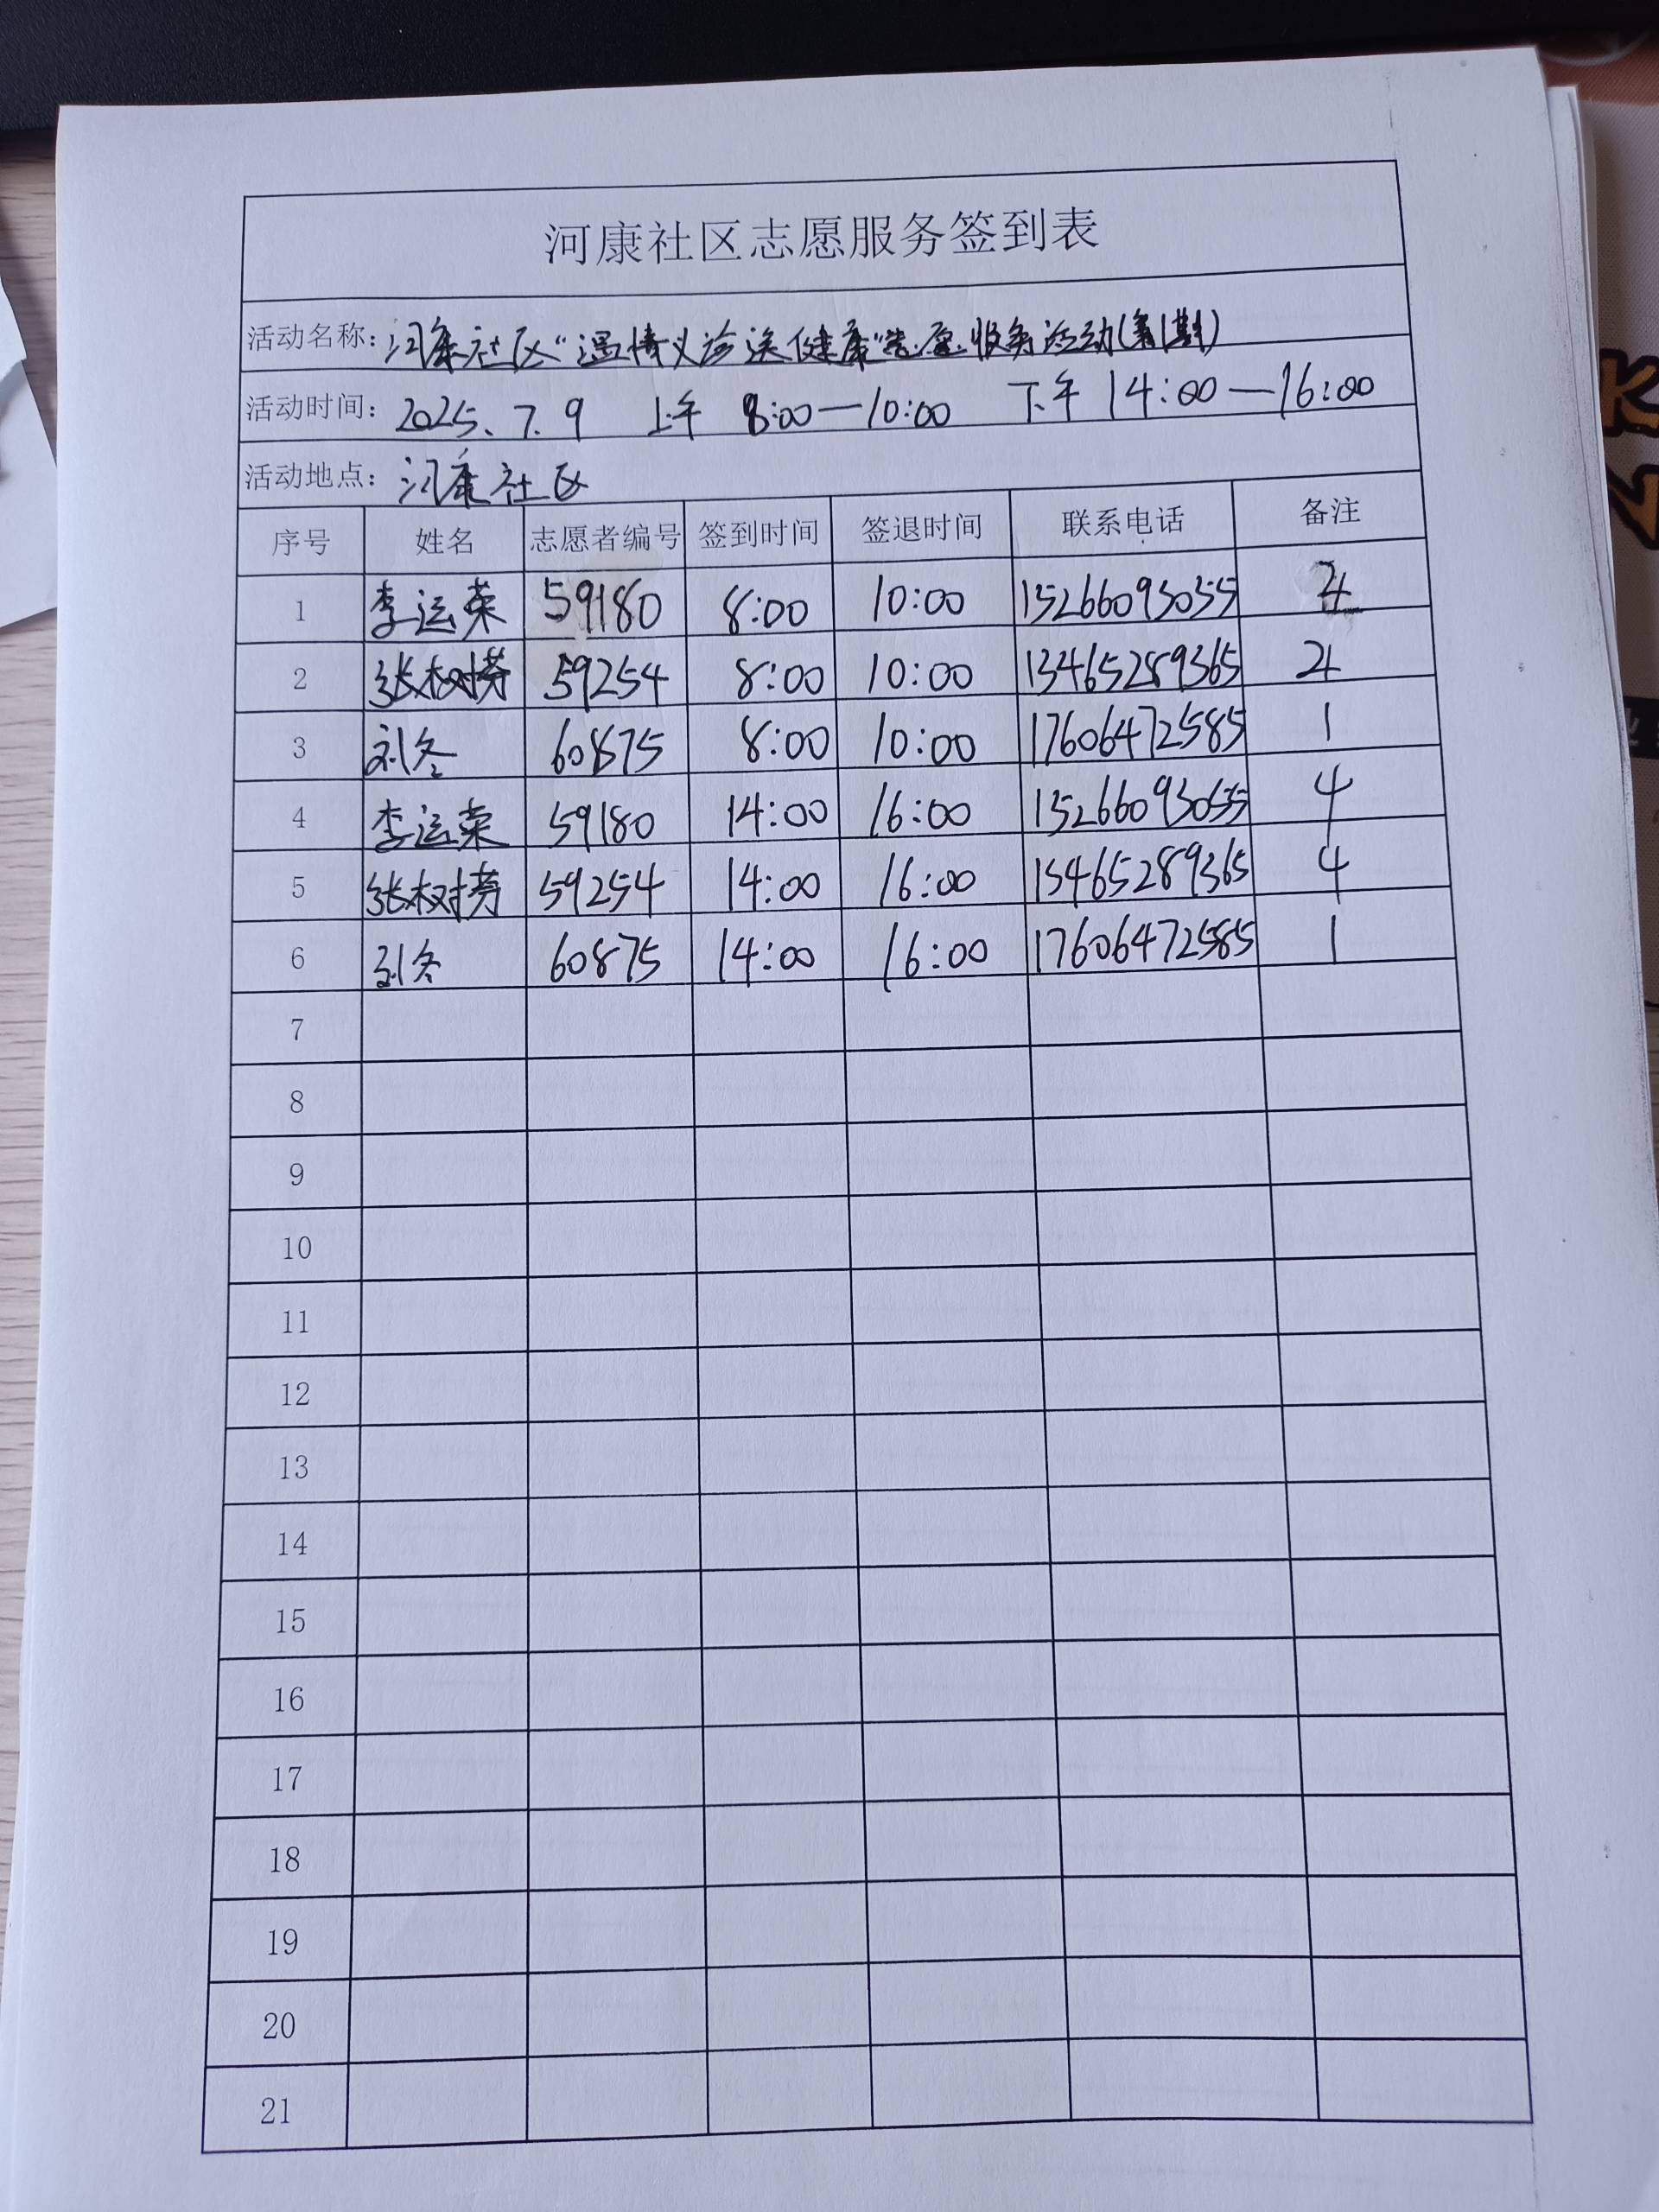 河康社区志愿服务签到表
活动名称：河康社区“温情义诊送健康”志愿服务活动(第1期)
活动时间：2025.7.9 上午 8:00—10:00 下午 14:00—16:00
活动地点：河康社区
序号 姓名 志愿者编号 签到时间 签退时间 联系电话 备注
1 李运荣 59180 8:00 10:00 15266093055 4
2 张树芬 59254 8:00 10:00 13465289365 4
3 刘冬 60875 8:00 10:00 17606472585 1
4 李运荣 59180 14:00 16:00 15266093055 4
5 张树芬 59254 14:00 16:00 13465289365 4
6 刘冬 60875 14:00 16:00 17606472585 1
7
8
9
10
11
12
13
14
15
16
17
18
19
20
21